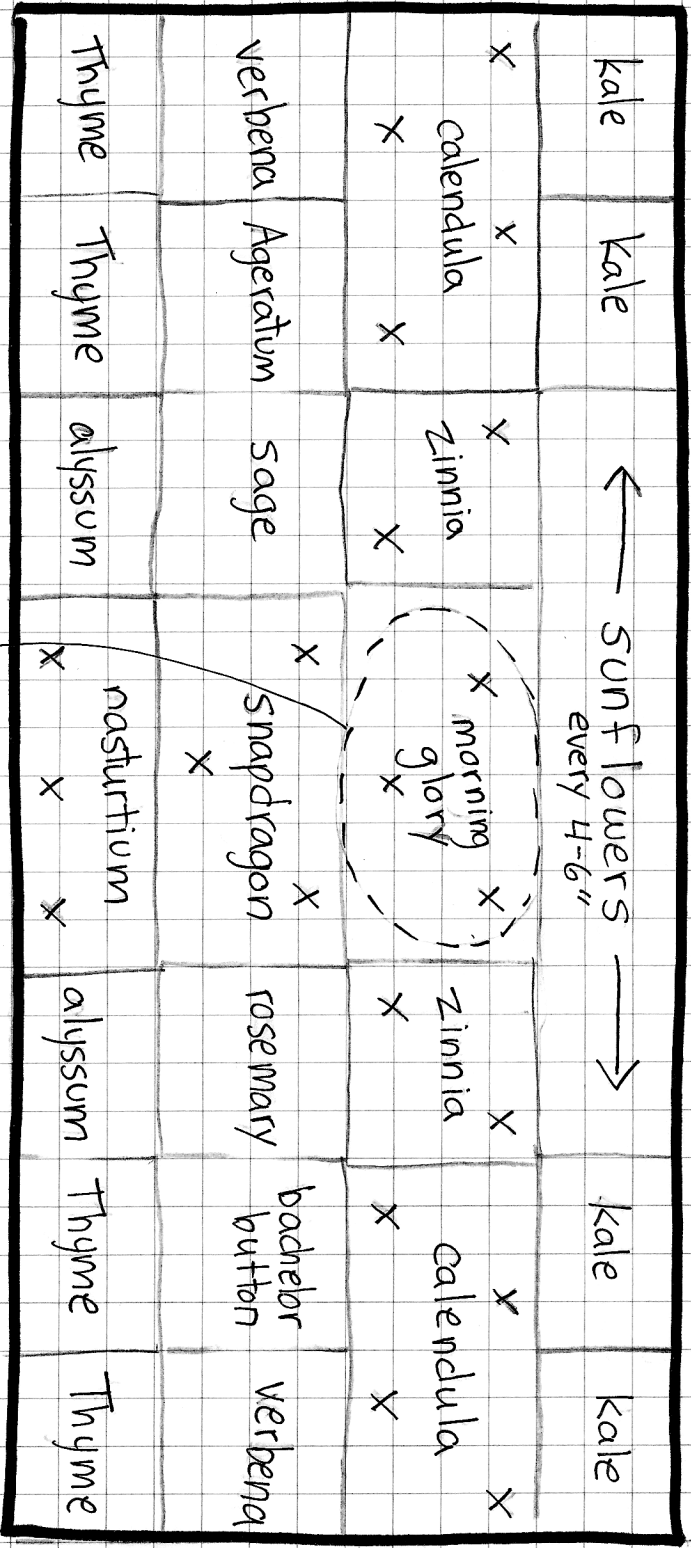 kale
Kale
sunflowers
every 4-6"
kale
kale
calendula
zinnia
morning
glory
zinnia
calendula
verbena
Ageratum
sage
snapdragon
rosemary
bachelor
button
verbena
Thyme
Thyme
alyssum
nasturtium
alyssum
Thyme
Thyme